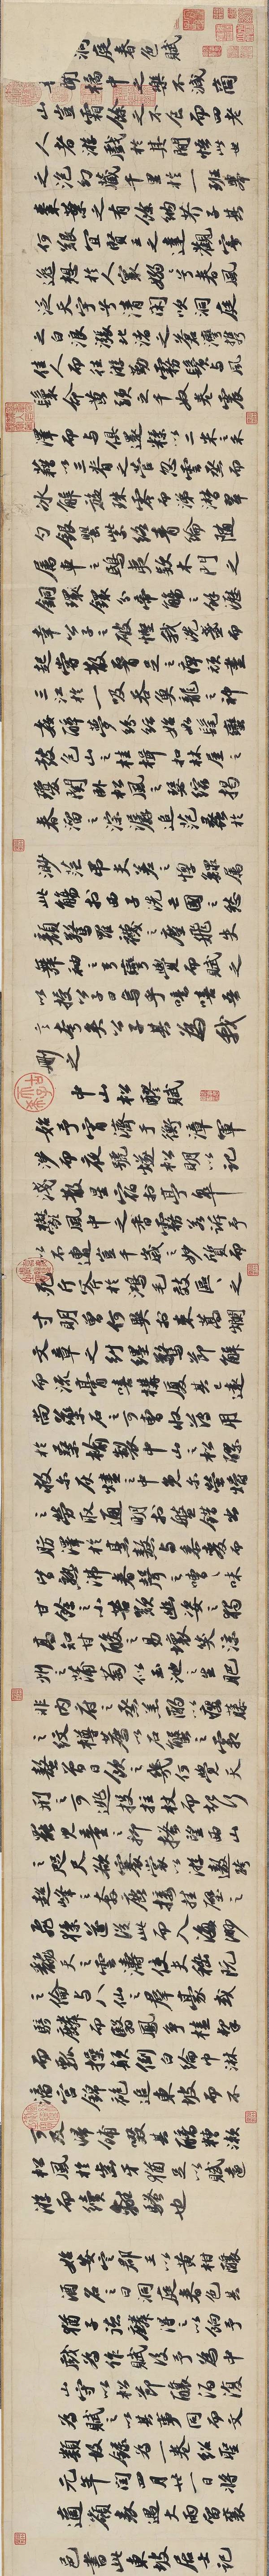 洞庭春色賦
吾聞橘中之樂不減商
山豈霜餘之不食而四老
人者游戲於其間悟此世
之泡幻藏千里於一班舉
棗葉之有餘納芥子其
何艱宜賢王之達觀寄
逸想於人寰嫋嫋兮春風
泛天宇兮清閑吹洞庭
之白浪漲北渚之蒼灣携
佳人而往游勤霧鬢與風
鬟命黃頭之千奴卷震
澤而與俱還糅以二米之禾
藉以三脊之菅忽雲烝而
冰解旋珠零而涕潸翠
勺銀罌紫絡青綸隨
屬車之鴟夷款木門之
銅鐶分帝觴之餘瀝
幸公子之破慳我洗盞而
起嘗散腰足之痹頑盡
三江於一吸吞魚龍之神
姦醉夢紛紜始如髦蠻
鼓包山之桂楫扣林屋之
瓊關卧松風之瑟縮揭
春溜之淙潺追范蠡於
渺茫吊夫差之惸鰥屬
此觴於西子洗亡國之愁
顏驚羅襪之塵飛失
舞袖之弓彎覺而賦之
以授公子曰烏乎噫嘻吾
言夸矣公子其為我
刪之
中山松醪賦
始予宵濟於衡漳軍
涉而夜號燧松明以記
淺散星宿於亭皋
鬱風中之香霧若訴予
以不遭豈千歲之妙質而
死斤斧於鴻毛效區區之
寸明曾何異於束蒿爛
文章之糾纆驚節解
而流膏嗟構廈其已遠
尚藥石之可曹收薄用
於桑榆製中山之松醪
救爾灰燼之中免爾螢爝
之勞取通明於盤錯出
肪澤於烹熬與黍麥而
皆熟沸春聲之嘈嘈味
甘餘之小苦歎幽姿之獨
高知甘酸之易壞笑涼
州之蒲萄似玉池之生肥
非内府之蒸羔酌以癭藤
之紋樽薦以石蟹之霜
螯曾日飲之幾何覺天
刑之可逃投拄杖而起行
罷兒童之抑搔望西山
之咫尺欲褰裳以游遨跨
超峰之奔鹿接挂壁之
飛猱遂從此而入海渺
飜天之雲濤使夫嵇阮
之倫與八仙之羣豪或
騎麟而翳鳳爭榼挈
而瓢操顛倒白綸巾淋
漓宮錦袍追東坡而不
可及歸餔歠其醨糟漱
松風於齒牙猶足以賦遠
游而續離騷也
始安定郡王以黃柑釀
酒名之曰洞庭春色其
猶子德麟得之以餉予
戲為作賦後予為中
山守以松節釀酒復
為賦之以其事同而文
類故錄為一卷紹聖
元年閏四月廿一日將
適嶺表遇大雨留襄
邑書此東坡居士記